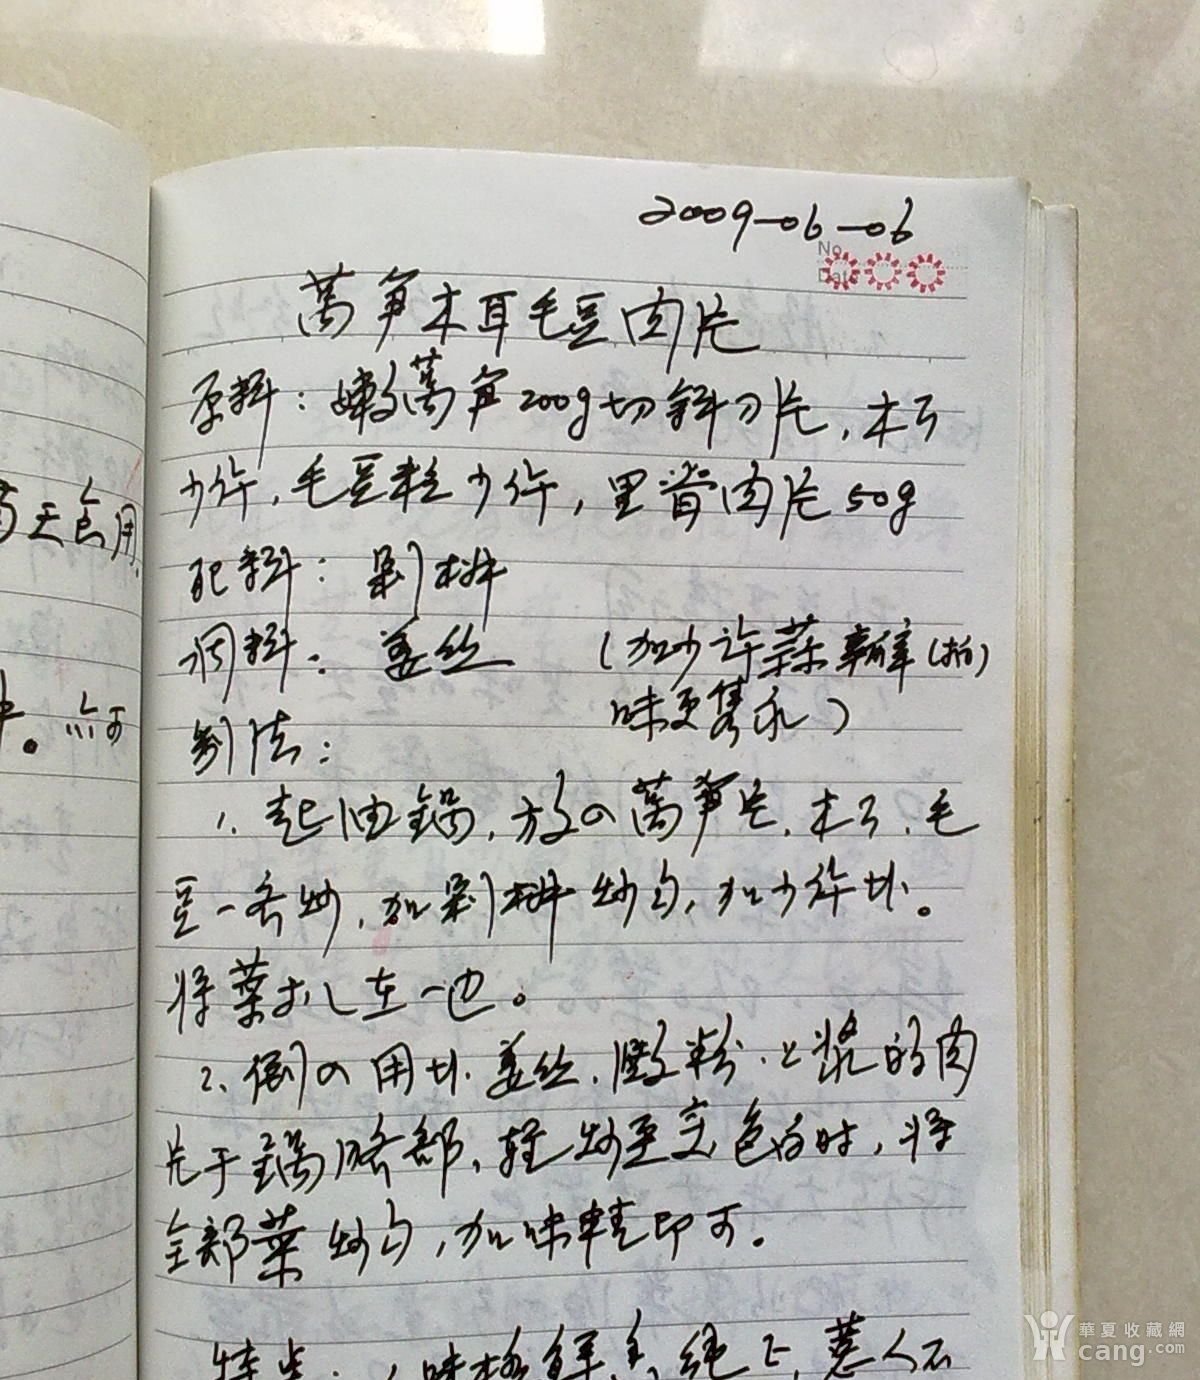 2009-06-06
No
Date
莴笋木耳毛豆肉片
原料：嫩莴笋200g切斜刀片，木耳
少许，毛豆粒少许，里脊肉片50g
配料：剁椒
调料：姜丝 （加少许蒜瓣（拍）
味更隽永）
制法：
1、起油锅，放入莴笋片、木耳、毛
豆一齐炒，加剁椒炒匀，加少许盐。
将菜扒在一边。
2、倒入用盐、姜丝、澱粉上浆的肉
片于锅中部，轻炒至变色白时，将
全部菜炒匀，加味精即可。
特点：1味
天食用
。亦可
華夏收藏網
cang.com